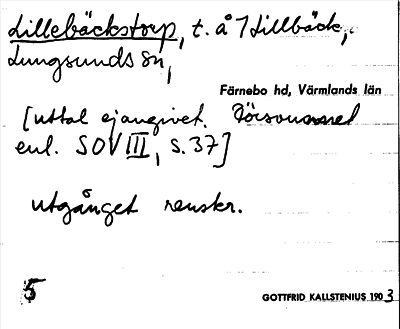 Lillebäckstorp, t. å 7 Lillbäck,
Lungsunds sn,
Färnebo hd, Värmlands län
[uttal ej angivet.
enl. SOV III, s. 37]
utgånget renskr.
5
GOTTFRID KALLSTENIUS 1903